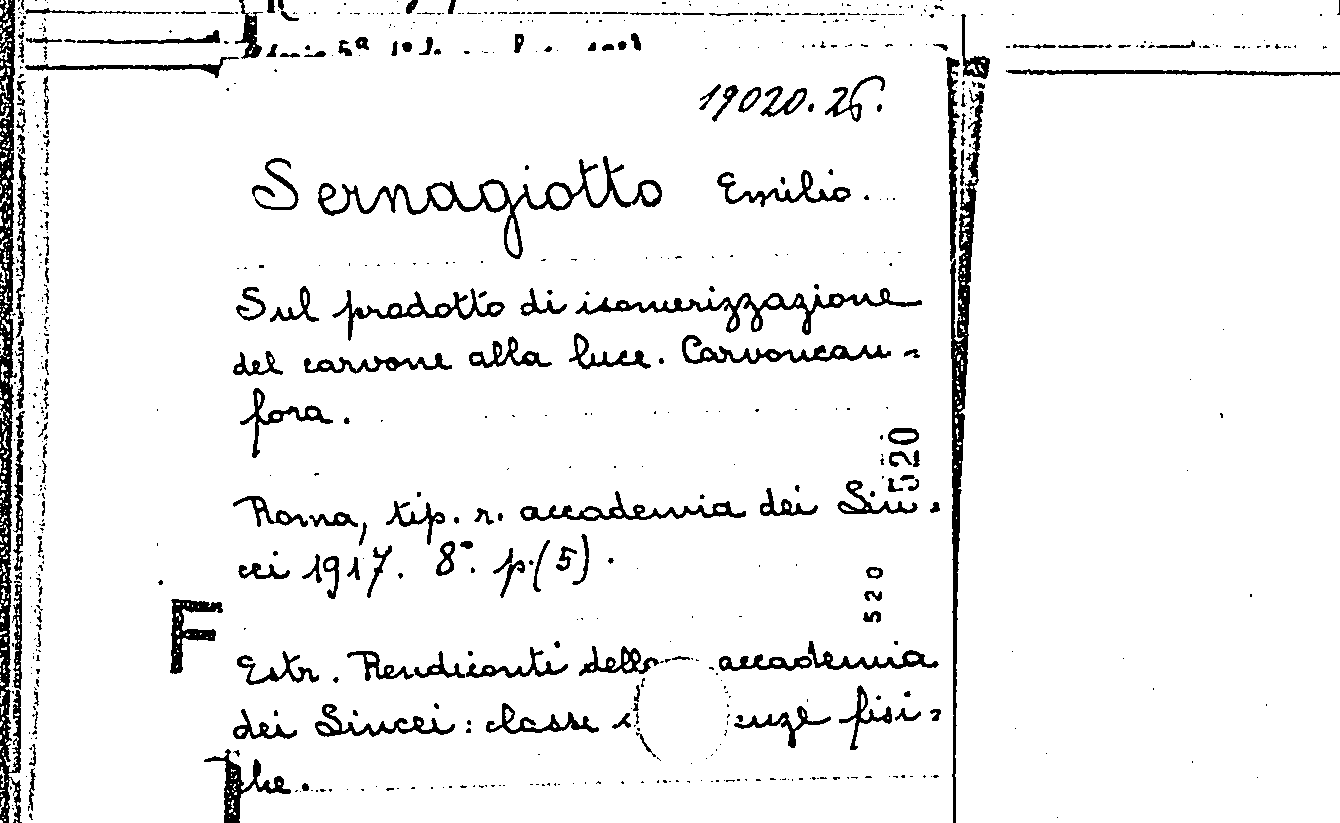 19020.26.
Sernagiotto Emilio.
Sul prodotto di isomerizzazione
del carvone alla luce. Carvoncan=
fora.
520
Roma, tip. r. accademia dei Lin=
cei 1917. 8º. p.(5).
520
F
Estr. Rendiconti della accademia
dei Lincei: classe fisi=
che.